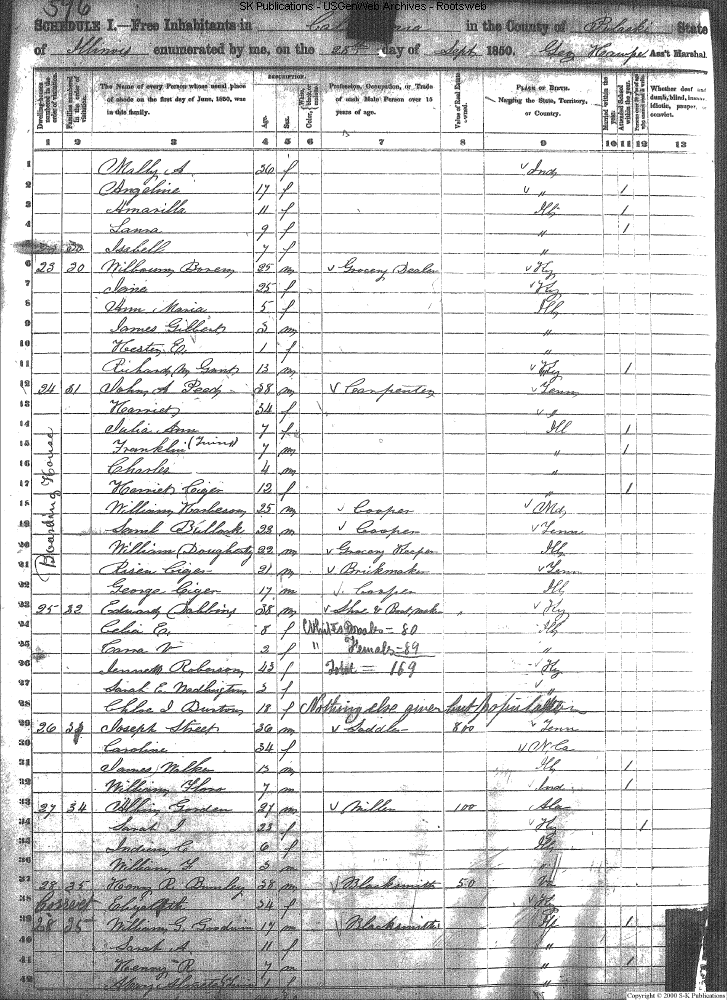 SK Publications - USGenWeb Archives - Rootsweb
576
SCHEDULE I.—Free Inhabitants in in the County of Pulaski State
of Illinois enumerated by me, on the 25th day of Sept 1850. Geo Ass't Marshal.
Dwelling-houses numbered in the order of visitation.
Families numbered in the order of visitation.
The Name of every Person whose usual place of abode on the first day of June, 1850, was in this family.
DESCRIPTION.
Age.
Sex.
Color, White, black or mulatto.
Profession, Occupation, or Trade of each Male Person over 15 years of age.
Value of Real Estate owned.
PLACE OF BIRTH. Naming the State, Territory, or Country.
Married within the year.
Attended School within the year.
Whether deaf and dumb, blind, insane, idiotic, pauper, or convict.
1 2 3 4 5 6 7 8 9 10 11 12 13
1 Mally A 36 f v Ind
2 Angeline 17 f v " 1
3 Amarilla 11 f Ill 1
4 Laura 9 f " 1
5 Isabell 7 f "
6 23 30 Wilbourn 25 m v Grocery Dealer v Ky
7 Jane 25 f v Ky
8 Ann Maria 5 f Ill
9 James Gilbert 3 m "
10 Hester E. 1 f "
11 Richard M Grant 13 m v Ky 1
12 24 31 John A Peed 38 m v Carpenter v Tenn
13 Harriet 34 f v "
14 Julia Ann 7 f Ill 1
15 Franklin (Twins) 7 m " 1
16 Charles 4 m "
17 Harriet Ciger 12 f 1
Boarding House
18 William 25 m v Cooper v Md
19 Bullock 23 m v Cooper v Tenn
20 William Dougherty 22 m v Grocery Keeper Ill
21 Ciger 21 m v Brickmaker v Tenn
22 George Ciger 17 m v Cooper Ill
23 25 32 Edward Dabbins 38 m v Shoe & Boot maker v Ky
24 Celia E. 8 f Whites Males = 80 Ill
25 V 2 f " Females - 89 "
26 Roberson 43 f Total = 169 Ky
27 Sarah E. Wadlington 3 f v "
28 Chloe I Burton 18 f Nothing else given but population
29 26 33 Joseph Street 36 m v Saddler 800 v Tenn
30 Caroline 34 f v N. Ca
31 James Walker 13 m Ill 1
32 William Flora 7 m v Ind 1
33 27 34 Gorden 27 m v Miller 100 v Ala
34 Sarah I 23 f v Ky 1
35 C. 6 f Ill
36 William F 3 m "
37 28 35 Henry R 38 m v Blacksmith 50 Va
38 Correct Elizabeth 34 f v Ky
39 28 35 William G. Goodwin 17 m v Blacksmith Ky 1
40 Sarah A 11 f "
41 Henry R 7 m " 1
42 1 f "
Copyright © 2000 S-K Publications